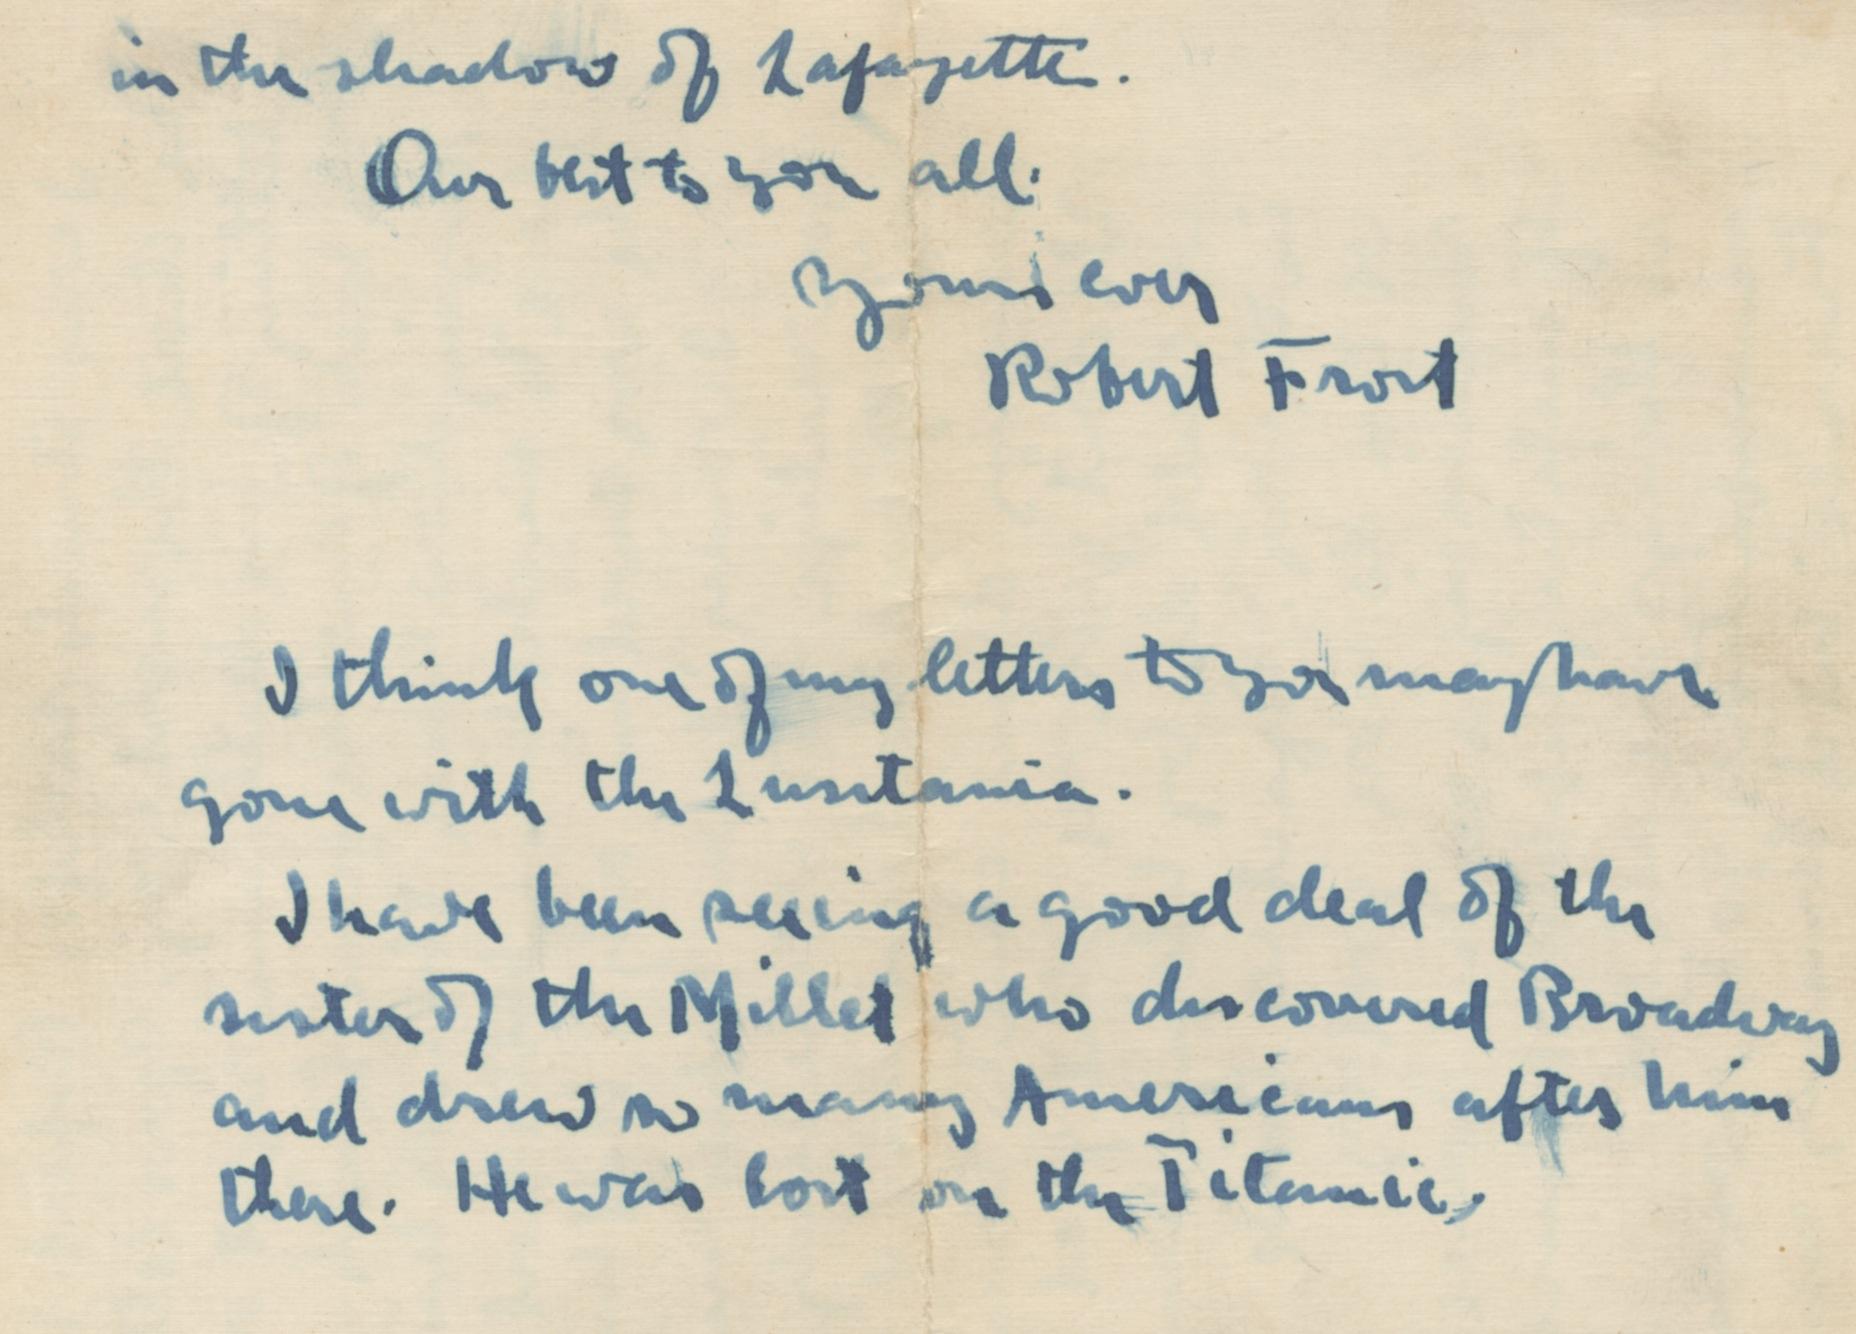 in the shadow of Lafayette.
Our best to you all.
Yours ever
Robert Frost
I think one of my letters to you may have
gone with the Lusitania.
I have been seeing a good deal of the
sister of the Millet who discovered Broadway
and drew so many Americans after him
there. He was lost on the Titanic.